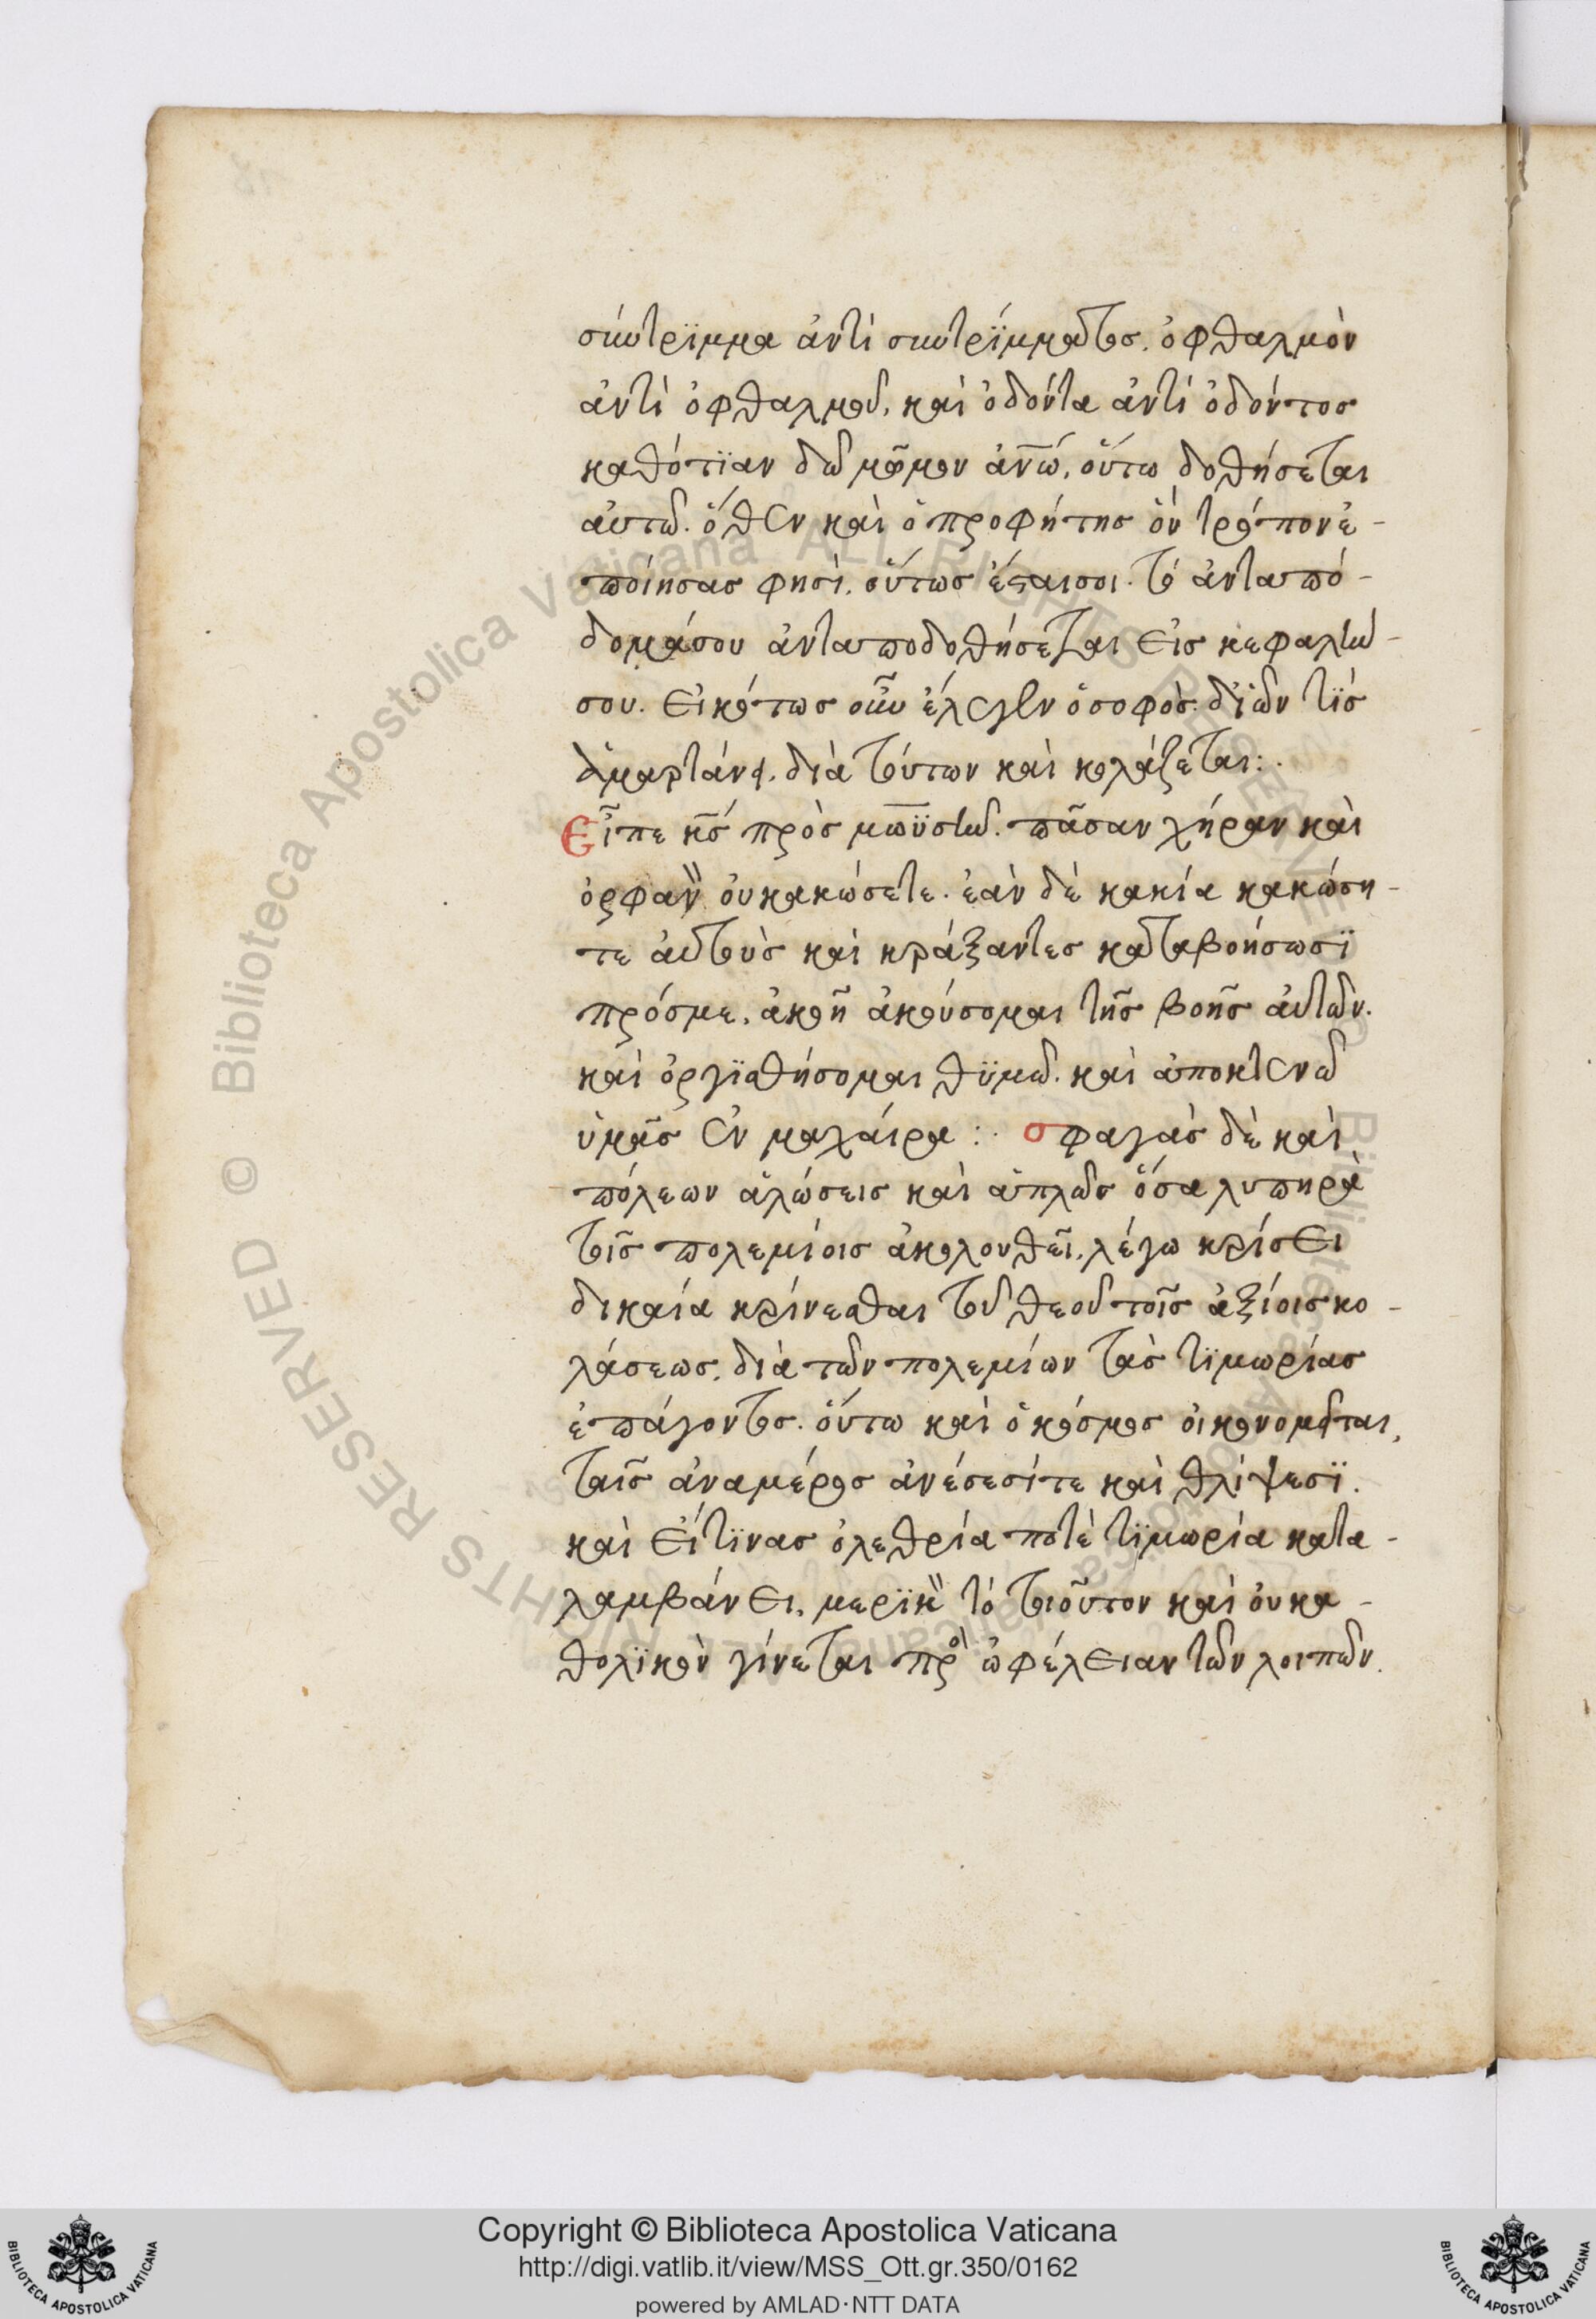 σύντρϊμμα ἀντὶ συντρΐμματος. ὀφθαλμὸν
ἀντὶ ὀφθαλμοῦ, καὶ ὀδόντα ἀντὶ ὀδόντος
καθότϊαν δῶ μῶμον ἀνω, οὕτω δοθήσεται
αὐτῶ. ὅθεν καὶ ὁ προφήτης ὃν τρόπον ἐ-
ποίησας φησὶ, οὕτως ἔσταισοι. τό ἀνταπό-
δομάσου ἀνταποδοθήσεται εἰς κεφαλὴν
σου. εἰκότως οὖν ἔλεγεν ὁσοφὸς. δϊὧν τϊς
ἁμαρτάνει, διὰ τούτων καὶ κολάζεται:.
Εἶπε κς πρὸς μωϋσὴν. πᾶσαν χήραν καὶ
ὀρφανὸν οὐκακώσετε. ἐὰν δὲ κακία κακώση-
τε αὐτοὺς καὶ κράξαντες καταβοήσωσϊ
πρόσμε, ἀκοῆ ἀκούσομαι τῆς βοῆς αὐτῶν.
καὶ ὀργϊσθήσομαι θϋμῶ. καὶ ἀποκτενῶ
ὑμᾶς ἐν μαχάιρα :. σφαγὰς δὲ καὶ
πόλεων ἁλώσεις καὶ ἁπλῶς ὅσα λυπηρὰ
τοῖς πολεμίοις ἀκολουθεῖ, λέγω κρίσει
δικαία κρίνεσθαι τοῦ θεοῦ τοῖς ἀξίοις κο-
λάσεως, διὰ τῶν πολεμίων τὰς τϊμωρίας
ἐπάγοντος. οὕτω καὶ ὁ κόσμος οἰκονομεῖται,
ταῖς ἀναμέρος ἀνέσεσίτε καὶ θλίψεσϊ.
καὶ εἴτϊνας ὀλεθρία ποτὲ τϊμωρία κατα-
λαμβάνει, μερϊκὸν τό τοιοῦτον καὶ οὐκα-
θολϊκὸν γίνεται πρὸς ὠφέλειαν τῶν λοιπῶν.
Copyright © Biblioteca Apostolica Vaticana
http://digi.vatlib.it/view/MSS_Ott.gr.350/0162
powered by AMLAD·NTT DATA